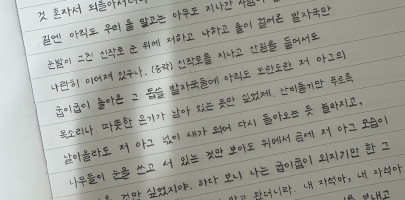 것 혼자서 되돌아서
길엔 아직도 우리 둘 말고는 아무도 지나간 사람이
눈발이 그친 신작로 눈 위에 저하고 나하고 둘이 걸어온 발자국만
나란히 이어져 있구나. (중략) 신작로를 지나고 산길을 들어서도
굽이굽이 돌아온 그 몹쓸 발자국들에 아직도 도란도란 저 아그의
목소리나 따뜻한 온기가 남아 있는 듯만 싶었제. 산비둘기만 푸르륵
날아올라도 저 아그 넋이 새가 되어 다시 돌아오는 듯 놀라지고,
나무들이 눈을 쓰고 서 있는 것만 보아도 뒤에서 금세 저 아그 모습이
것만 싶었지야. 하다 보니 나는 굽이굽이 외지기만 한 그
밟고 왔더니라. 내 자석아, 내 자석아
보내고